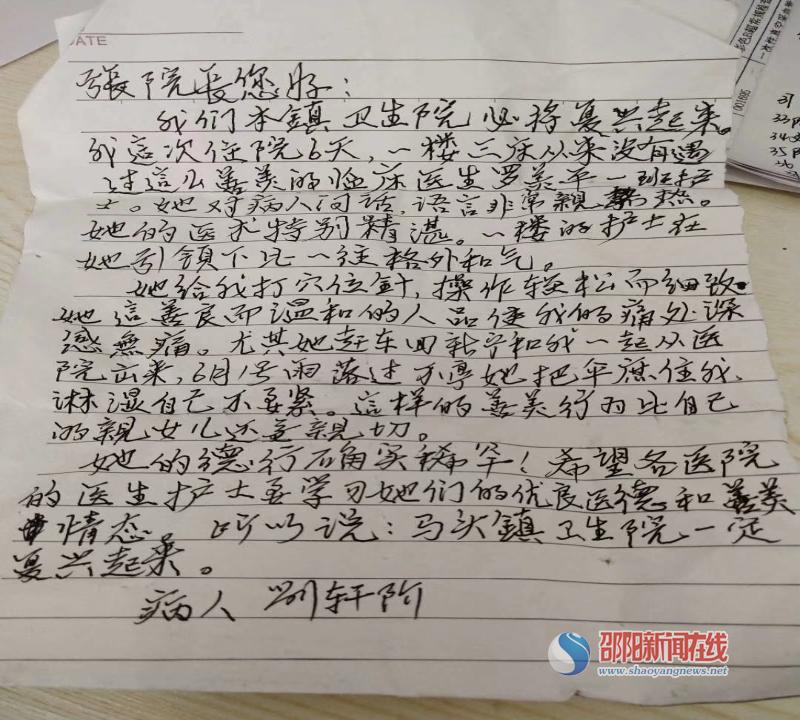 DATE
張院長您好：
我们本鎮卫生院必将复兴起来。
我這次住院6天，一楼三床从来没有遇
过這么善美的临床医生罗美平一班护
士。她对病人问话，语言非常親热。
她的医术特别精湛。一楼的护士在
她引領下比一往格外和气。
她给我打穴位針，操作轻松而细致。
她這善良而温和的人品使我的痛处深
感無痛。尤其她赶车回
和我一起从医
院出来，6月1号雨落过不亭她把伞庶住我，
淋湿自己不要紧。這样的善美行为比自己
的親女儿还要親切。
她的德行确实稀罕！希望各医院
的医生护士要学习她们的优良医德和善美
情态。所以说：马头鎮卫生院一定
复兴起来。
病人 刘轩阶
邵阳新闻在线
www.shaoyangnews.net
001695
33
34
35